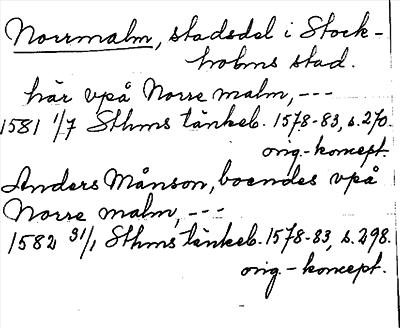 Norrmalm, stadsdel i Stock-
holms stad.
här vpå Norre malm, ---
1581 1/7 Sthms tänkeb. 1578-83, s. 270.
orig.-koncept.
Anders Månson, boendes vpå
Norre malm, ---
1582 31/1 Sthms tänkeb. 1578-83, s. 298.
orig.-koncept.